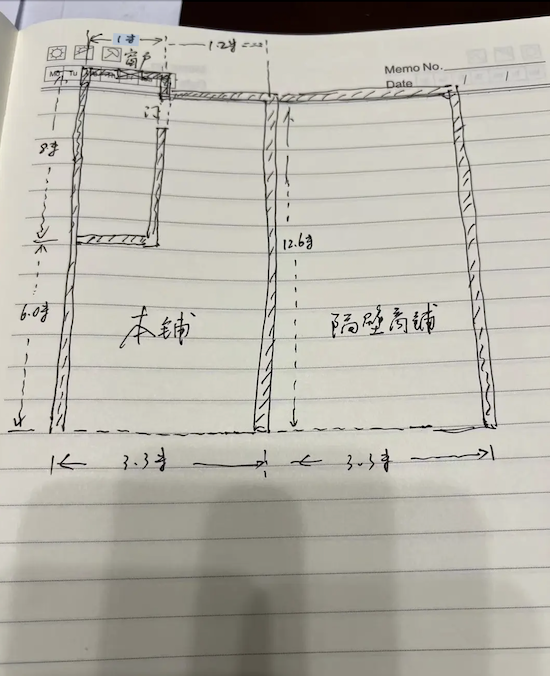 1米
1.2米
窗户
Memo No.
Mo Tu
Date / /
门
8米
12.6米
6.0米
本铺
隔壁商铺
3.3米
3.3米